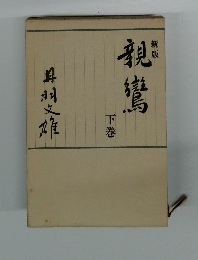 新版
親鸞
下巻
丹羽文雄